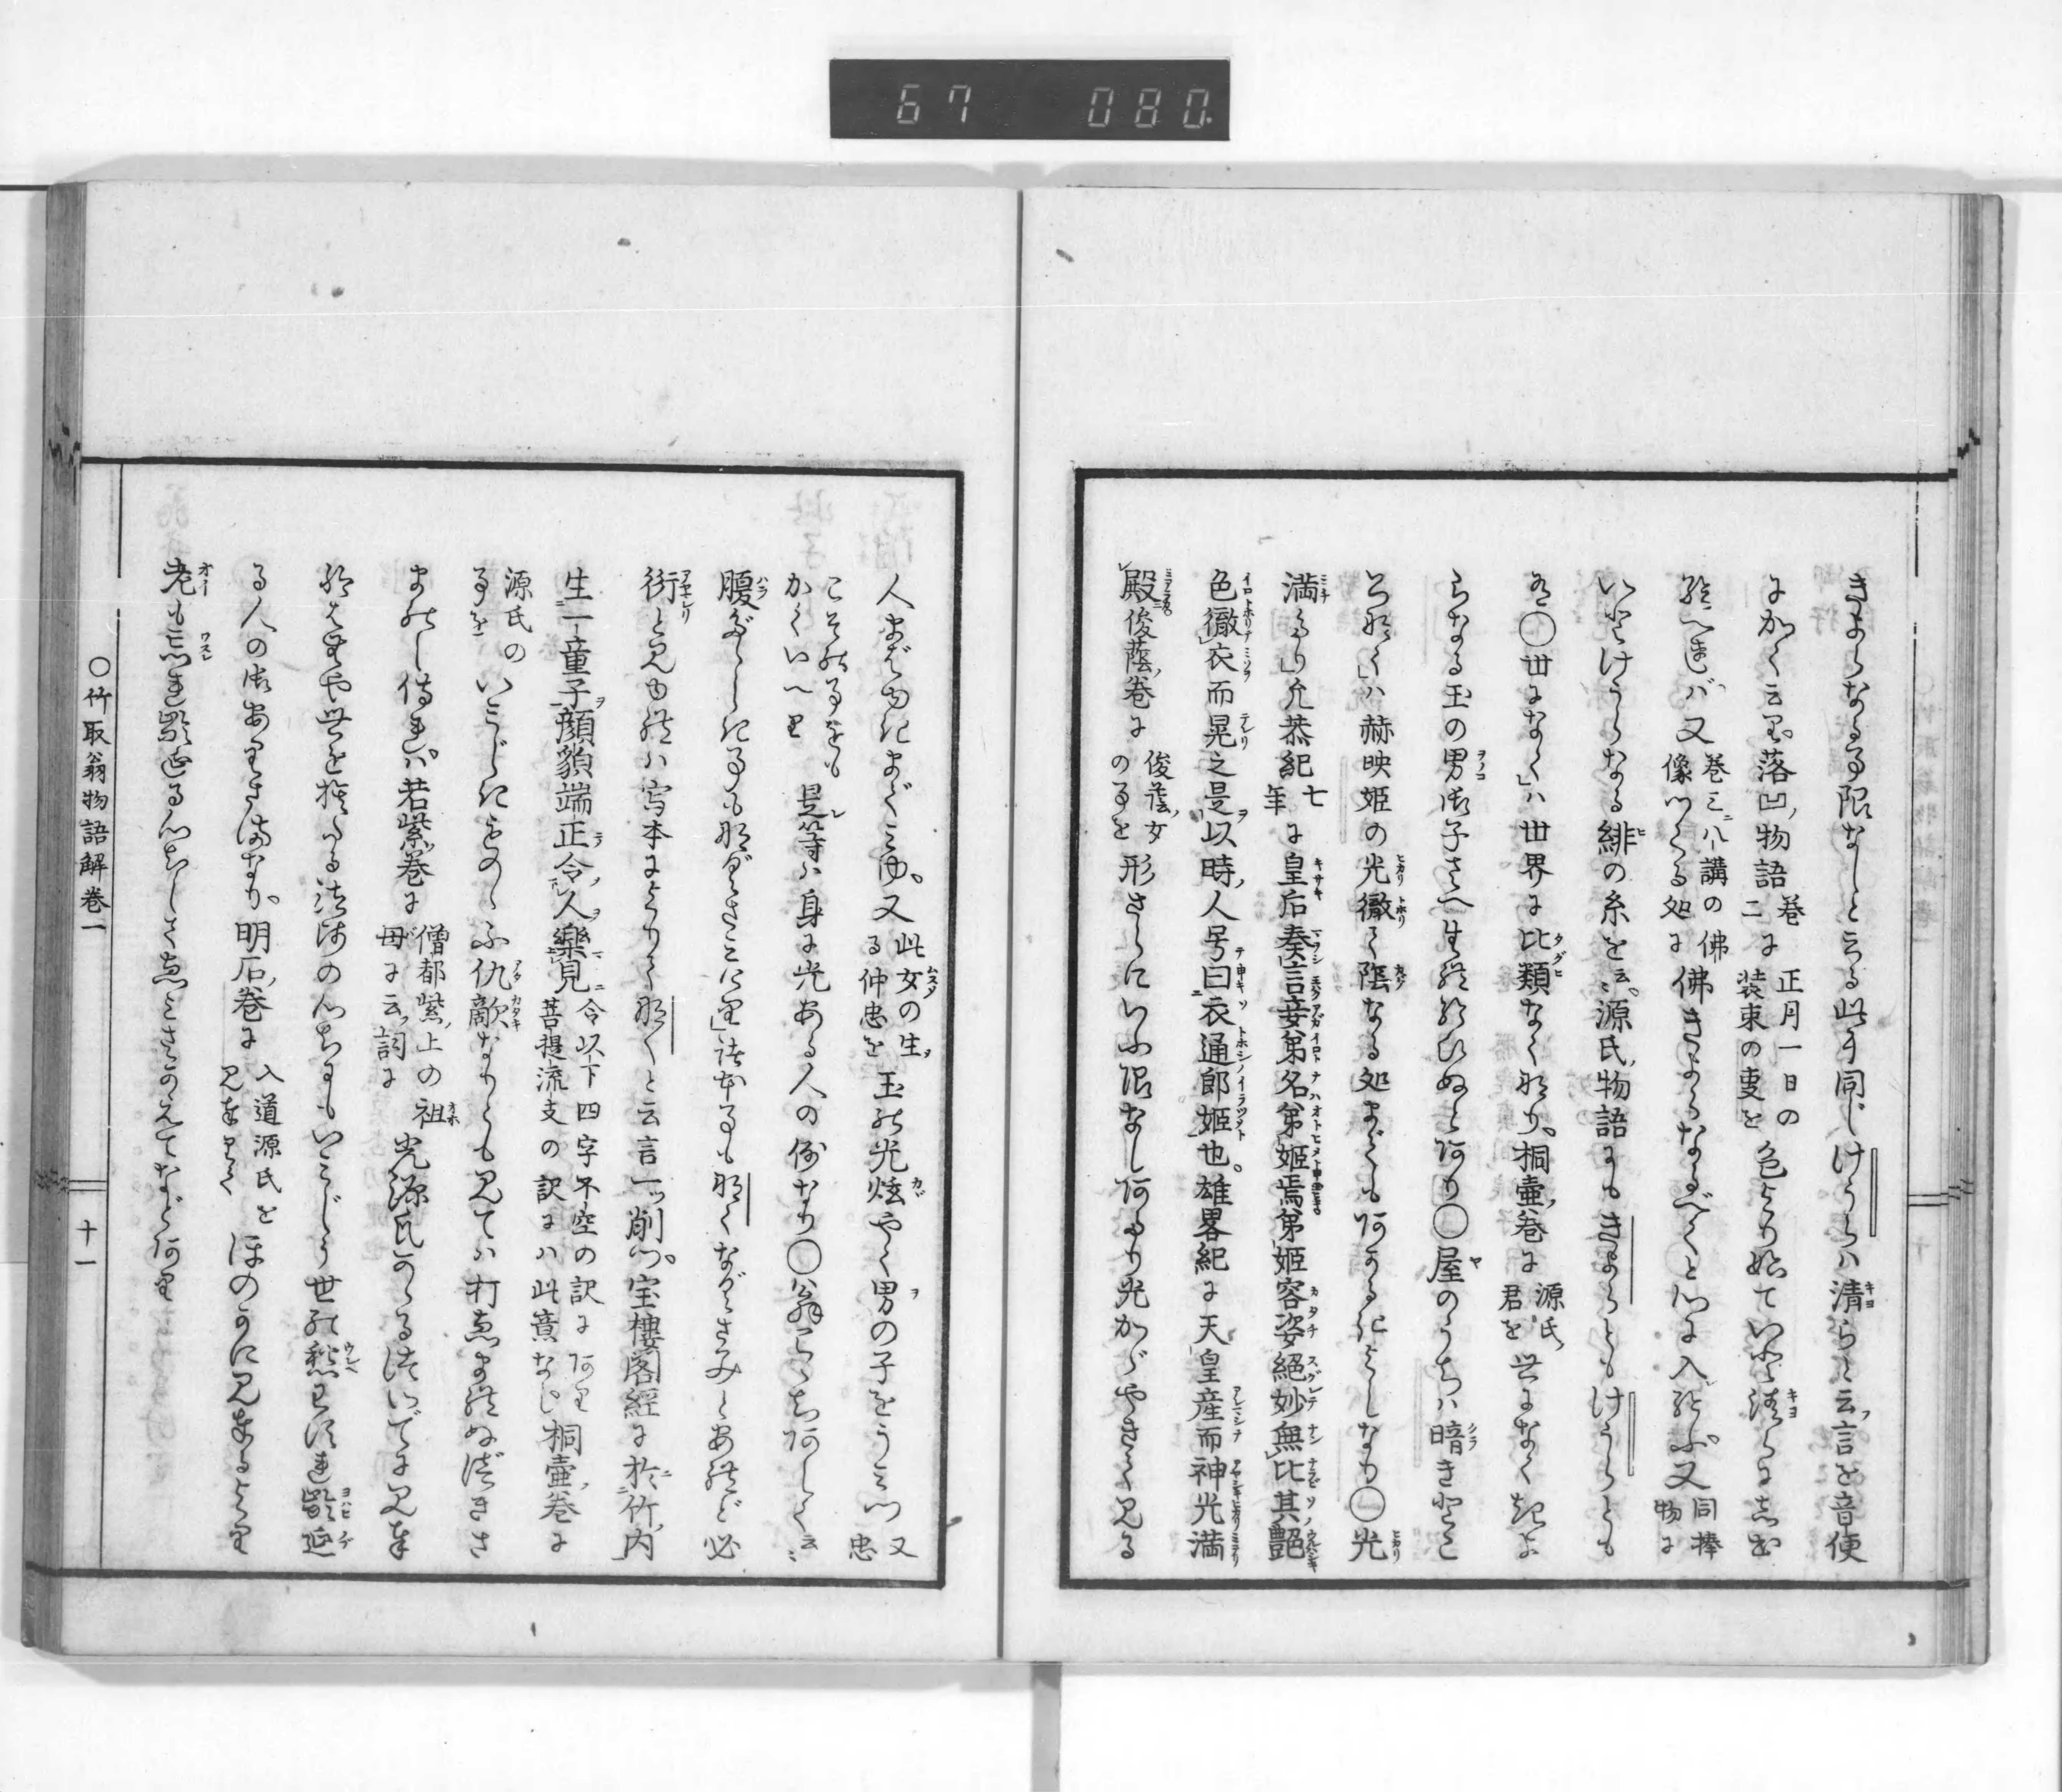 67 080
きよらなる事限なしと云る此才同じけうらハ清らと云言を音便
にかく云り落凹物語巻二に正月一日の装束の叓を色より始ていと清らにし出
給へればハ又巻三八講の佛像つくる処に佛きよらなるべくと心に入給ふ又同捧物に
いとけうらなる緋の糸を云々源氏物語にもきよらともけうらとも
有○世になく」ハ世界に比類なく也桐壺巻に源氏君を世になくきよ
らなる玉の男御子さへ生れ給ひぬとあり○屋のうちハ暗き所
なく」ハ赫映姫の光徹て陰なる処までもあかるきよしなり○光
満たり」允恭紀七年に皇后奏言妾弟名弟姫焉弟姫容姿絶妙無比其艶
色徹衣而晃之是以時人号曰衣通郎姫也雄畧紀に天皇産而神光満
殿俊蔭巻に俊蔭女の事を形さらにいふ限なしあたり光かゞやきて見る
人まばゆきまで見ゆ又此女の生る仲忠を玉の光炫やく男の子をうみつ又忠
こその事をもかくいへり是等ハ身に光ある人の例なり○翁こゝちあしく云々
腹だゝしき事も慰さみにけり」諸本事も那くなぐさみとあれど必
衍と見ゆれハ写本によりて那くと云言一ッ削つ宝樓閣經に於竹内
生一童子顔貌端正令人樂見令以下四字不空の訳にあり菩提流支の訳にハ此意なし桐壺巻に
源氏の事をいみじきものゝふ仇敵なりとも見てハ打ゑまれぬべきさ
ましし給れハ若紫巻に僧都紫上の祖母に云詞に光源氏かゝる次いでに見奉
り給ハんや世を捨たる法師の心ちにもいみじう世の愁わすれ齢延
る人の御ありさまなり明石巻に入道源氏を見奉りてほのかに見奉るより
老も忘れ齢延る心ちして ゑみさかえてなどあり
○竹取翁物語解巻一
十一